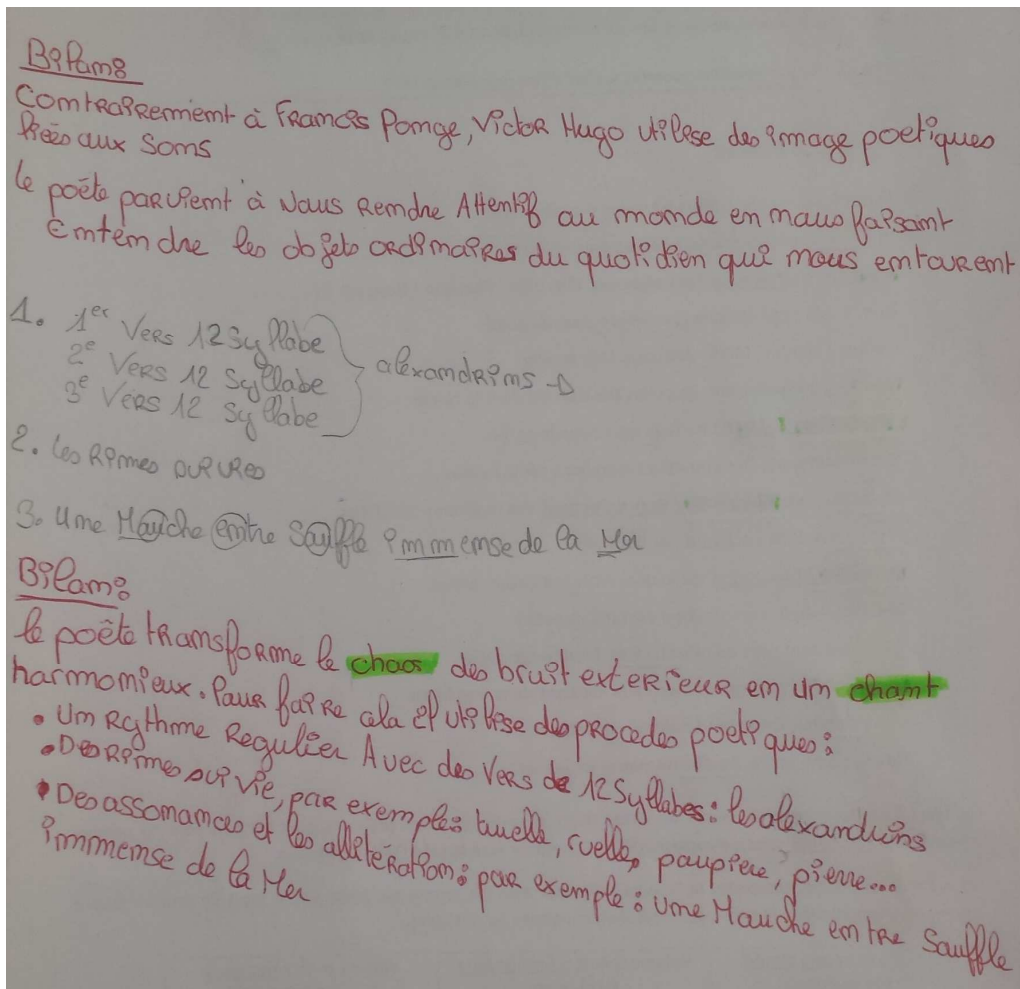 Bilan :
Contrairement à Francis Ponge, Victor Hugo utilise des image poetiques
liées aux sons
le poète parvient à Nous Rendre Attentif au monde en nous faisant
Entendre les objets ordinaires du quotidien qui nous entourent
1. 1er Vers 12 Syllabe
2e Vers 12 Syllabe
3e Vers 12 Syllabe
alexandrins →
2. les Rimes suivies
3. Une Mouche entre Souffle immense de la Mer
Bilan :
le poète transforme le chaos des bruit exterieur en un chant
harmonieux. Pour faire cela il utilise des procedes poetiques :
• Un Rythme Regulier Avec des Vers de 12 Syllabes : les alexandrins
• Des Rimes suivie, par exemple : tuelle, ruelle, paupiere, pierre...
• Des assonances et les allitération : par exemple : Une Mouche entre Souffle
immense de la Mer